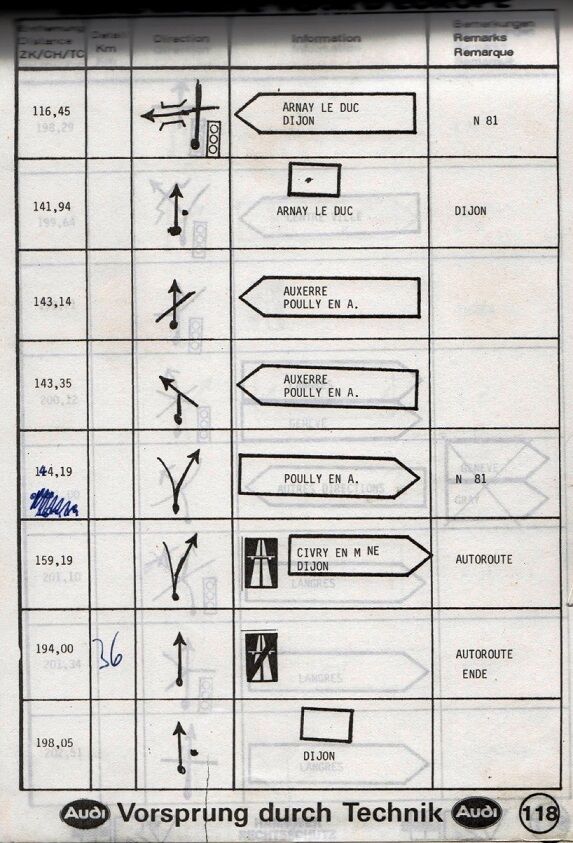 Distance
ZK/CH/TC
Km
Direction
Information
Bemerkungen
Remarks
Remarque
116,45
ARNAY LE DUC
DIJON
N 81
141,94
ARNAY LE DUC
DIJON
143,14
AUXERRE
POULLY EN A.
143,35
AUXERRE
POULLY EN A.
144,19
POULLY EN A.
N 81
159,19
CIVRY EN M NE
DIJON
AUTOROUTE
194,00
36
AUTOROUTE
ENDE
198,05
DIJON
Audi Vorsprung durch Technik Audi 118